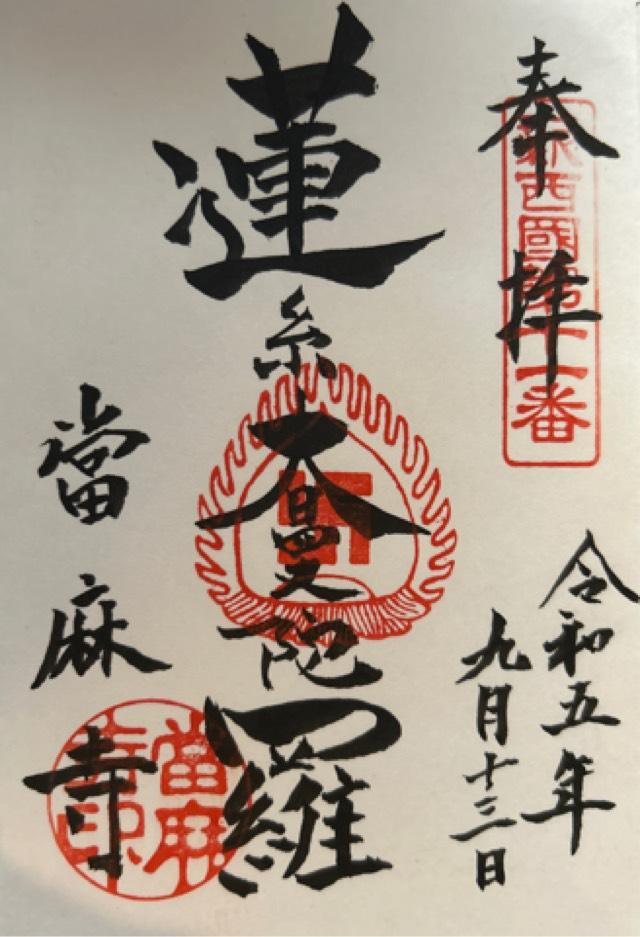 奉拝
新西國第十一番
令和五年
九月十三日
蓮糸大曼陀羅
當麻寺
當麻寺印